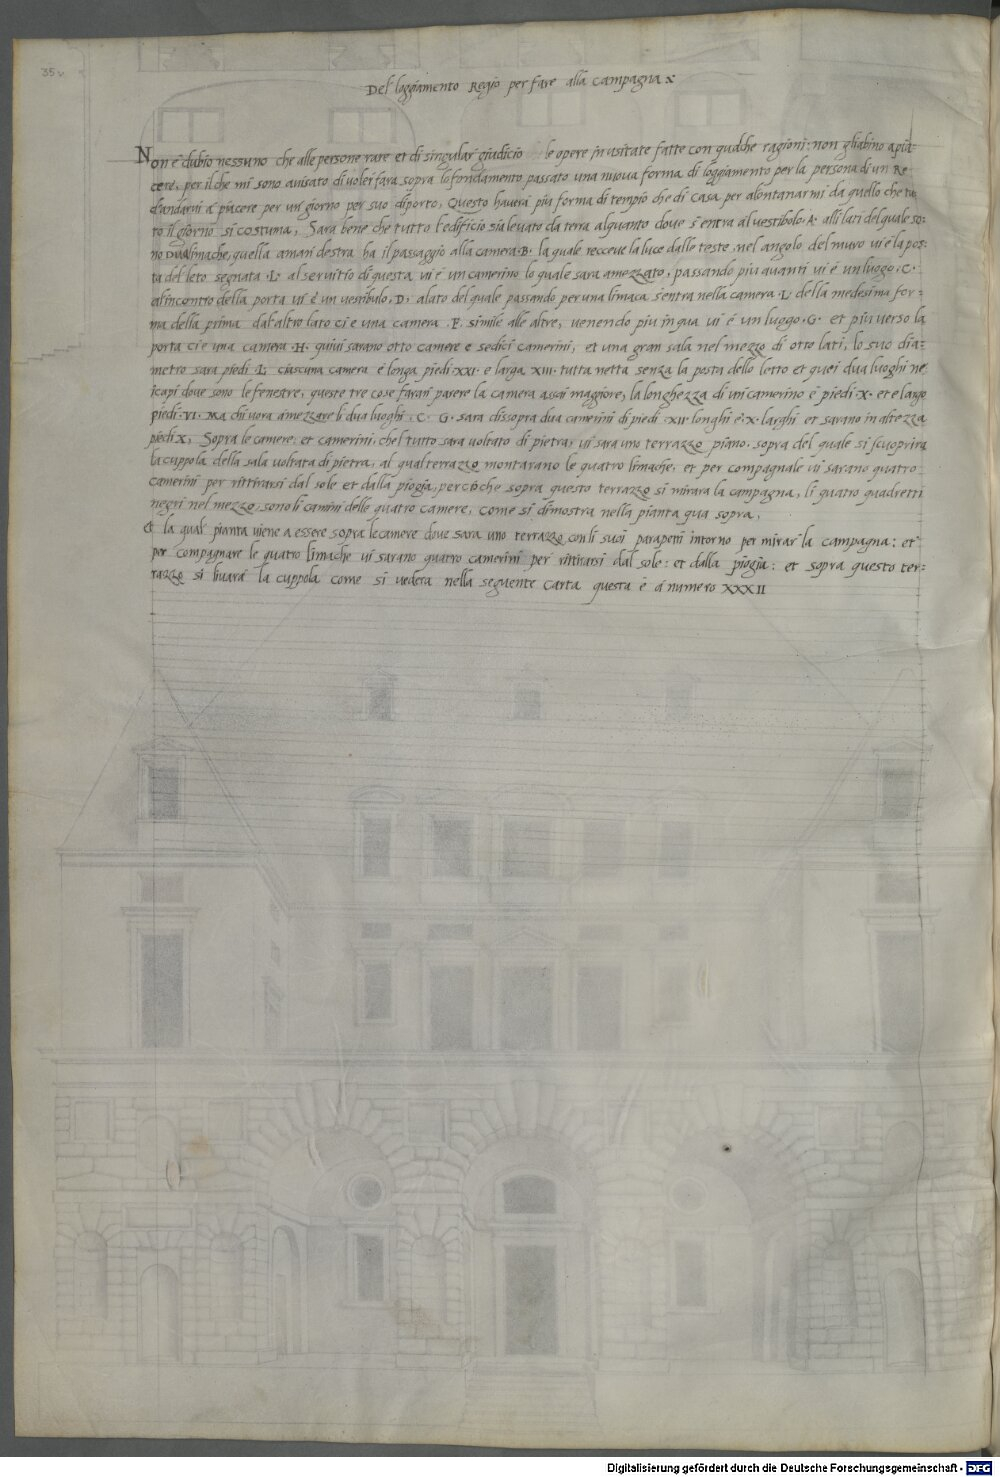 35v
Del loggiamento Regio per fare alla campagna X
Non è dubio nessuno che alle persone rare et di singular giudicio le opere inusitate fatte con qualche ragioni: non gli abino a pia-
cere, per il che mi sono avisato di voler fara sopra lo fondamento passato una nuova forma di loggiamento per la persona di un Re
d'andarvi à piacere per un giorno per suo diporto, Questo havera piu forma di tempio che di casa per alontanarmi da quello che tu-
to il giorno si costuma, Sara bene che tutto l'edificio sia levato da terra alquanto dove s'entra al vestibolo .A. alli lati del quale so-
no due limache, quella a man destra ha il passaggio alla camera .B. la quale receve la luce dalle teste, nel angolo del muro vi è la pos-
ta del leto segnata .L. al servitio di questa vi è un camerino lo quale sara amezzato, passando piu avanti vi è un luogo .C.
al'incontro della porta vi è un vestibulo .D. a lato del quale passando per una limaca s'entra nella camera .L. della medesima for-
ma della prima dal altro lato ci è una camera .F. simile alle altre, venendo piu in qua vi è un luogo .G. et piu verso la
porta ci è una camera .H. quivi sarano otto camere e sedici camerini, et una gran sala nel mezzo di otto lati, lo suo dia-
metro sara piedi .L. ciascuna camera è longa piedi XXI. e larga XIII. tutta netta senza la posta dello letto et quei dua luoghi ne
i capi dove sono le fenestre, queste tre cose faran parere la camera assai maggiore, la longhezza di un camerino è piedi .X. et è largo
piedi .VI. Ma chi vora amezzare li dua luoghi .C. G. sara di sopra dua camerini di piedi .XII. longhi e .X. larghi et sarano in altezza
piedi X, Sopra le camere, et camerini, che'l tutto sara voltato di pietra, vi sara uno terrazzo piano, sopra del quale si scuoprira
la cuppola della sala voltata di pietra, al qual terrazzo montarano le quatro limache, et per compagnale vi sarano quatro
camerini per rittirarsi dal sole et dalla piogia, percioche sopra questo terrazzo si mirara la campagna, li quatro quadretti
negri nel mezzo, sono li camini delle quatro camere, come si dimostra nella pianta qua sopra,
et la qual pianta viene a essere sopra le camere dove sara uno terrazzo con li suoi parapetti intorno per mirar la campagna: et
per compagnare le quatro limache vi sarano quatro camerini per rittirarsi dal sole: et dalla piogia: et sopra questo ter-
razzo si livara la cuppola come si vedera nella seguente carta questa è à numero XXXII
Digitalisierung gefördert durch die Deutsche Forschungsgemeinschaft - DFG